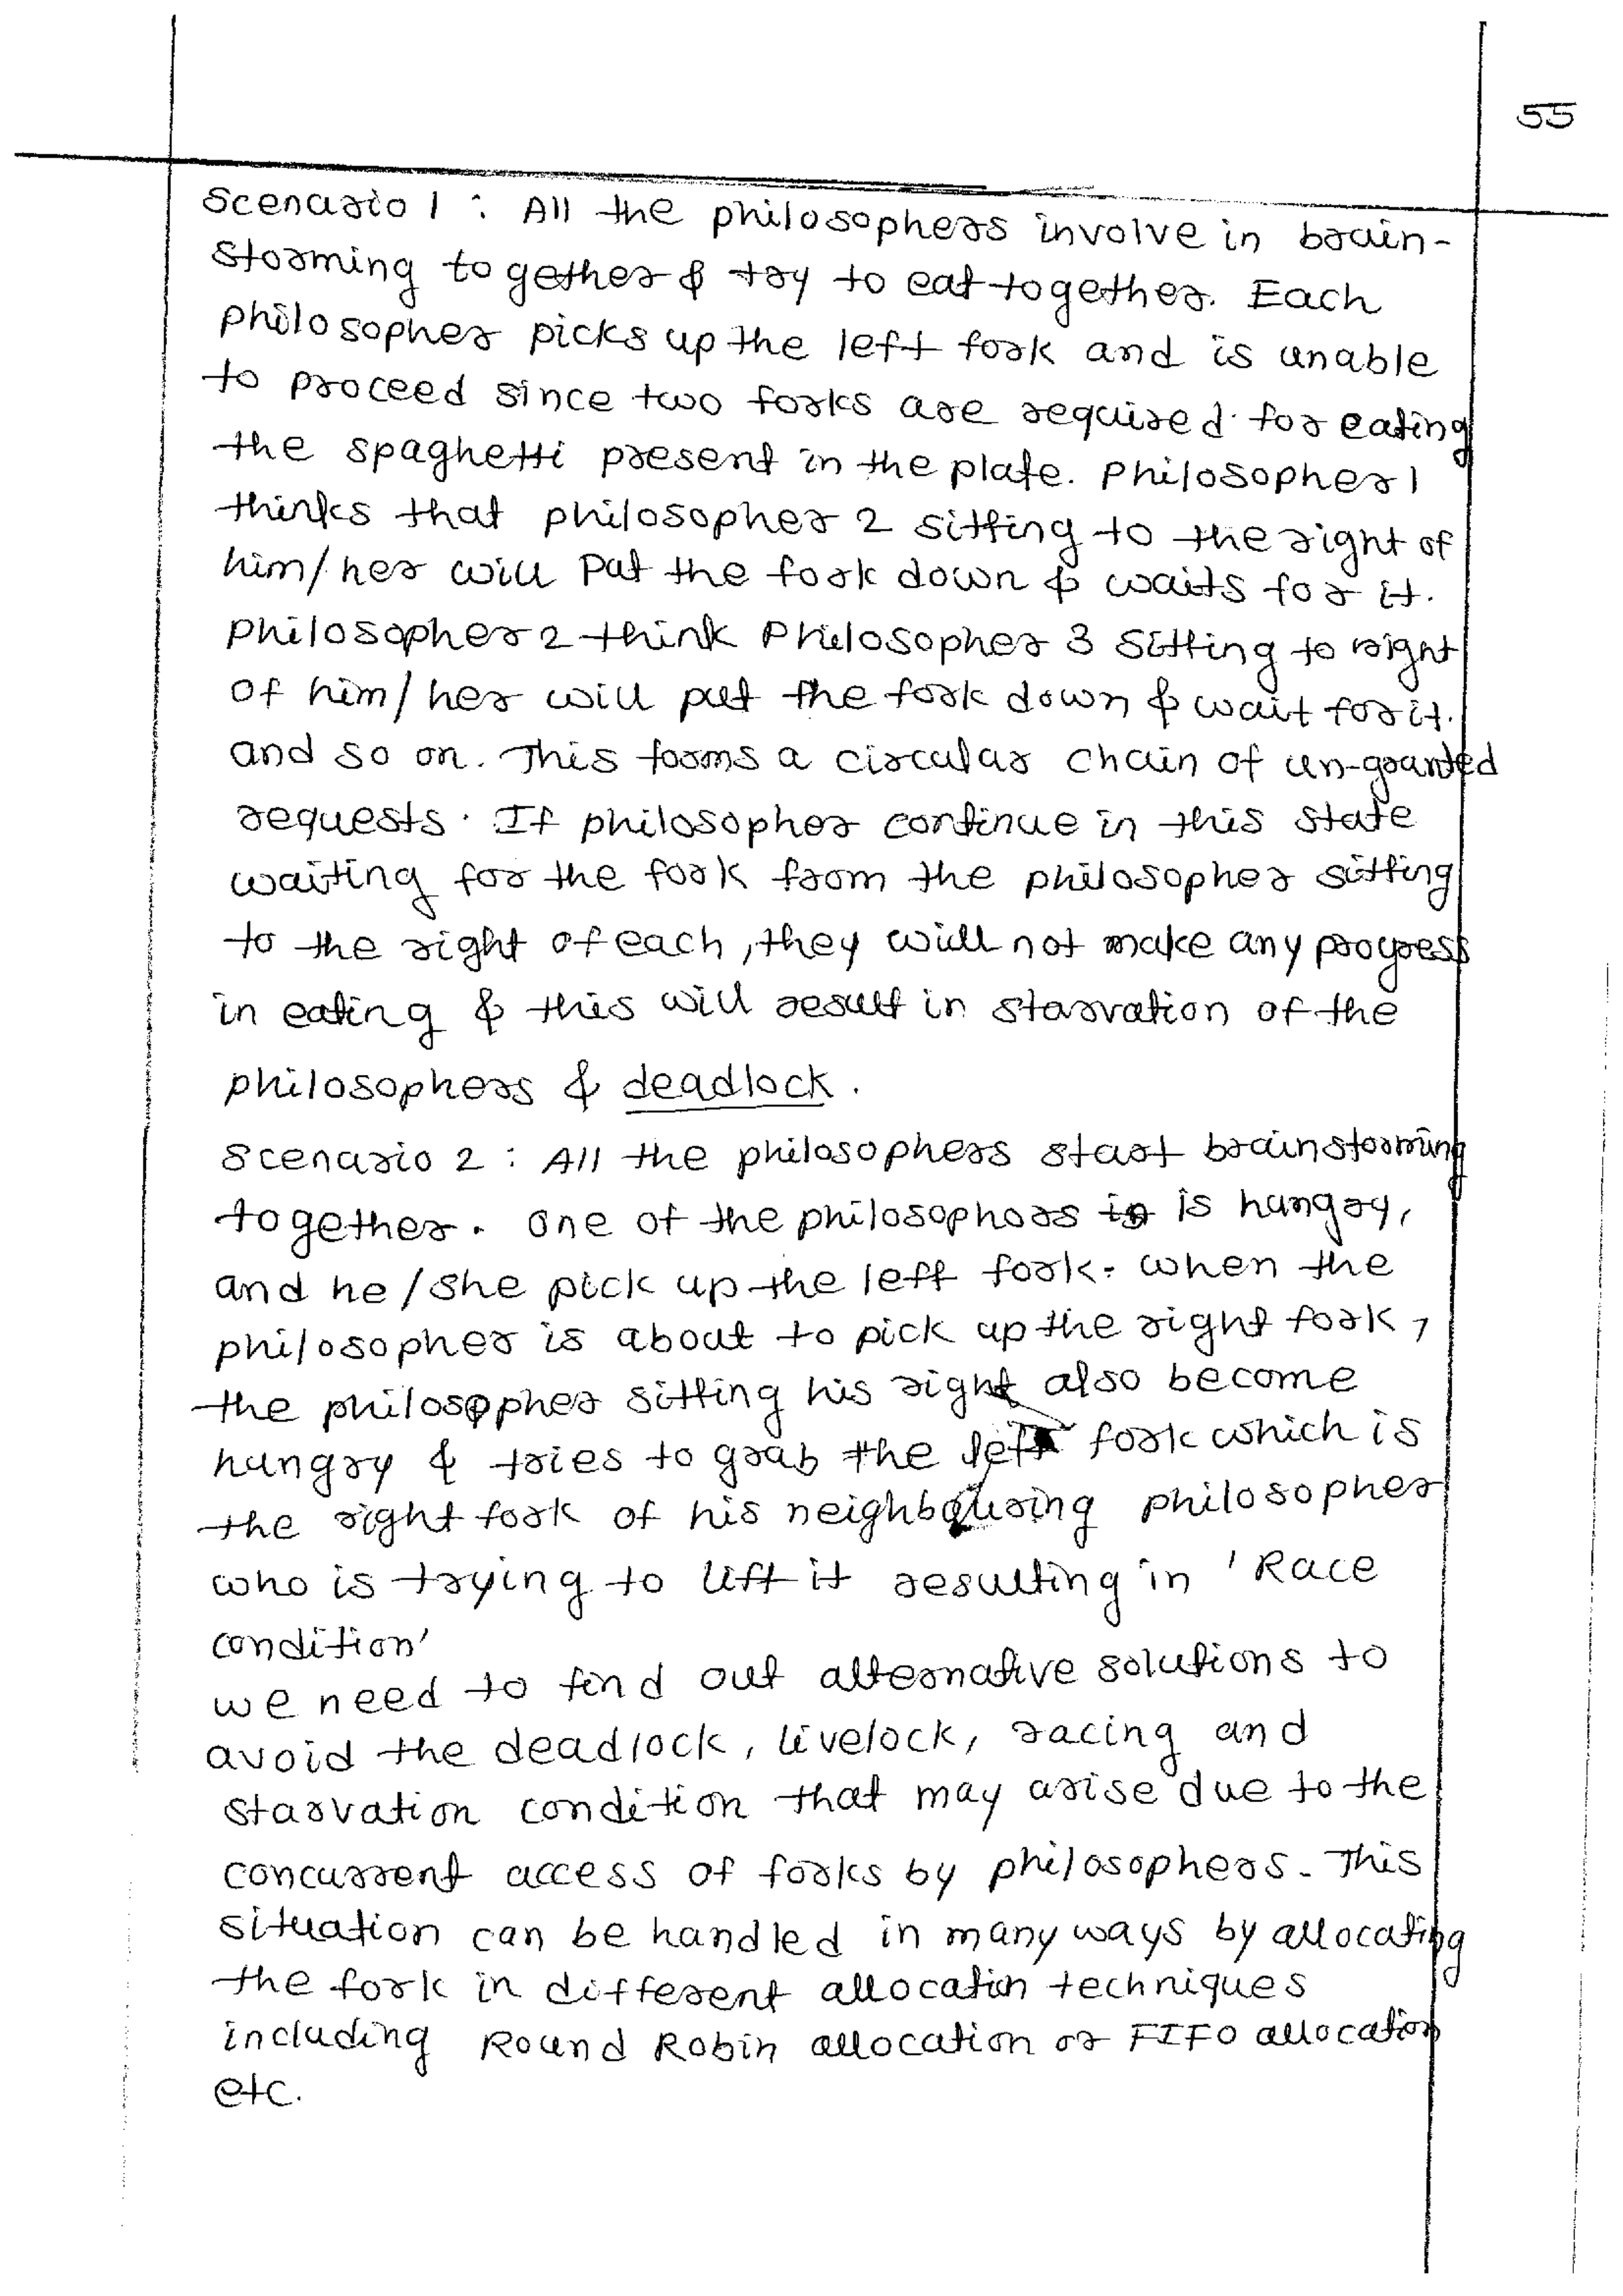 55
Scenario 1 : All the philosophers involve in brain-
storming together & try to eat together. Each
philosopher picks up the left fork and is unable
to proceed since two forks are required for eating
the spaghetti present in the plate. Philosopher 1
thinks that philosopher 2 sitting to the right of
him/her will Put the fork down & waits for it.
Philosopher 2 think Philosopher 3 Sitting to right
of him/her will put the fork down & wait for it.
and so on. This forms a circular chain of un-granted
requests. If philosopher continue in this state
waiting for the fork from the philosopher sitting
to the right of each, they will not make any progress
in eating & this will result in starvation of the
philosophers & deadlock.
Scenario 2 : All the philosophers start brainstorming
together. One of the philosophors is is hungry,
and he/she pick up the left fork. when the
philosopher is about to pick up the right fork,
the philosopher sitting his right also become
hungry & tries to grab the left fork which is
the right fork of his neighbouring philosopher
who is trying to lift it resulting in 'Race
condition'
we need to find out alternative solutions to
avoid the deadlock, livelock, racing and
starvation condition that may arise due to the
concurrent access of forks by philosophers. This
situation can be handled in many ways by allocating
the fork in different allocatin techniques
including Round Robin allocation or FIFO allocation
etc.